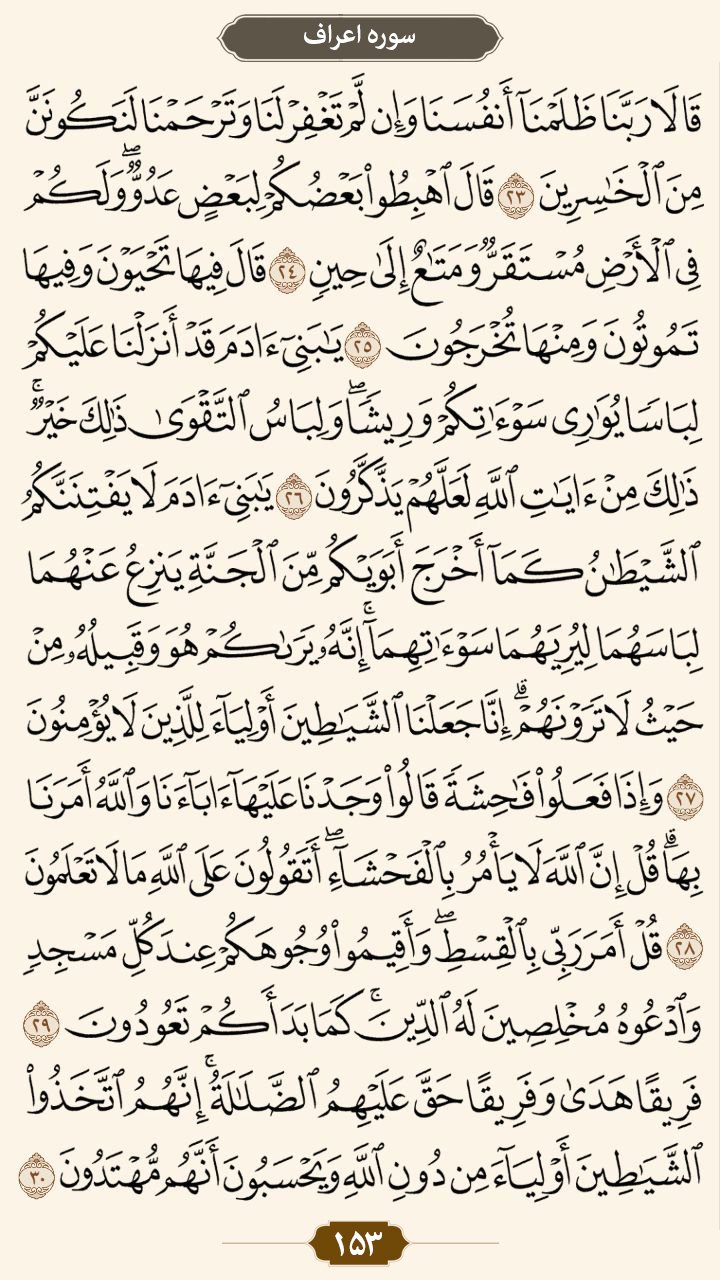 سوره اعراف
قَالَا رَبَّنَا ظَلَمۡنَآ أَنفُسَنَا وَإِن لَّمۡ تَغۡفِرۡ لَنَا وَتَرۡحَمۡنَا لَنَكُونَنَّ
مِنَ ٱلۡخَٰسِرِينَ ٢٣ قَالَ ٱهۡبِطُواْ بَعۡضُكُمۡ لِبَعۡضٍ عَدُوّٞۖ وَلَكُمۡ
فِي ٱلۡأَرۡضِ مُسۡتَقَرّٞ وَمَتَٰعٌ إِلَىٰ حِينٖ ٢٤ قَالَ فِيهَا تَحۡيَوۡنَ وَفِيهَا
تَمُوتُونَ وَمِنۡهَا تُخۡرَجُونَ ٢٥ يَٰبَنِيٓ ءَادَمَ قَدۡ أَنزَلۡنَا عَلَيۡكُمۡ
لِبَاسٗا يُوَٰرِي سَوۡءَٰتِكُمۡ وَرِيشٗاۖ وَلِبَاسُ ٱلتَّقۡوَىٰ ذَٰلِكَ خَيۡرٞۚ
ذَٰلِكَ مِنۡ ءَايَٰتِ ٱللَّهِ لَعَلَّهُمۡ يَذَّكَّرُونَ ٢٦ يَٰبَنِيٓ ءَادَمَ لَا يَفۡتِنَنَّكُمُ
ٱلشَّيۡطَٰنُ كَمَآ أَخۡرَجَ أَبَوَيۡكُم مِّنَ ٱلۡجَنَّةِ يَنزِعُ عَنۡهُمَا
لِبَاسَهُمَا لِيُرِيَهُمَا سَوۡءَٰتِهِمَآۚ إِنَّهُۥ يَرَىٰكُمۡ هُوَ وَقَبِيلُهُۥ مِنۡ
حَيۡثُ لَا تَرَوۡنَهُمۡۗ إِنَّا جَعَلۡنَا ٱلشَّيَٰطِينَ أَوۡلِيَآءَ لِلَّذِينَ لَا يُؤۡمِنُونَ
٢٧ وَإِذَا فَعَلُواْ فَٰحِشَةٗ قَالُواْ وَجَدۡنَا عَلَيۡهَآ ءَابَآءَنَا وَٱللَّهُ أَمَرَنَا
بِهَاۗ قُلۡ إِنَّ ٱللَّهَ لَا يَأۡمُرُ بِٱلۡفَحۡشَآءِۖ أَتَقُولُونَ عَلَى ٱللَّهِ مَا لَا تَعۡلَمُونَ
٢٨ قُلۡ أَمَرَ رَبِّي بِٱلۡقِسۡطِۖ وَأَقِيمُواْ وُجُوهَكُمۡ عِندَ كُلِّ مَسۡجِدٖ
وَٱدۡعُوهُ مُخۡلِصِينَ لَهُ ٱلدِّينَۚ كَمَا بَدَأَكُمۡ تَعُودُونَ ٢٩
فَرِيقًا هَدَىٰ وَفَرِيقًا حَقَّ عَلَيۡهِمُ ٱلضَّلَٰلَةُۚ إِنَّهُمُ ٱتَّخَذُواْ
ٱلشَّيَٰطِينَ أَوۡلِيَآءَ مِن دُونِ ٱللَّهِ وَيَحۡسَبُونَ أَنَّهُم مُّهۡتَدُونَ ٣٠
۱۵۳